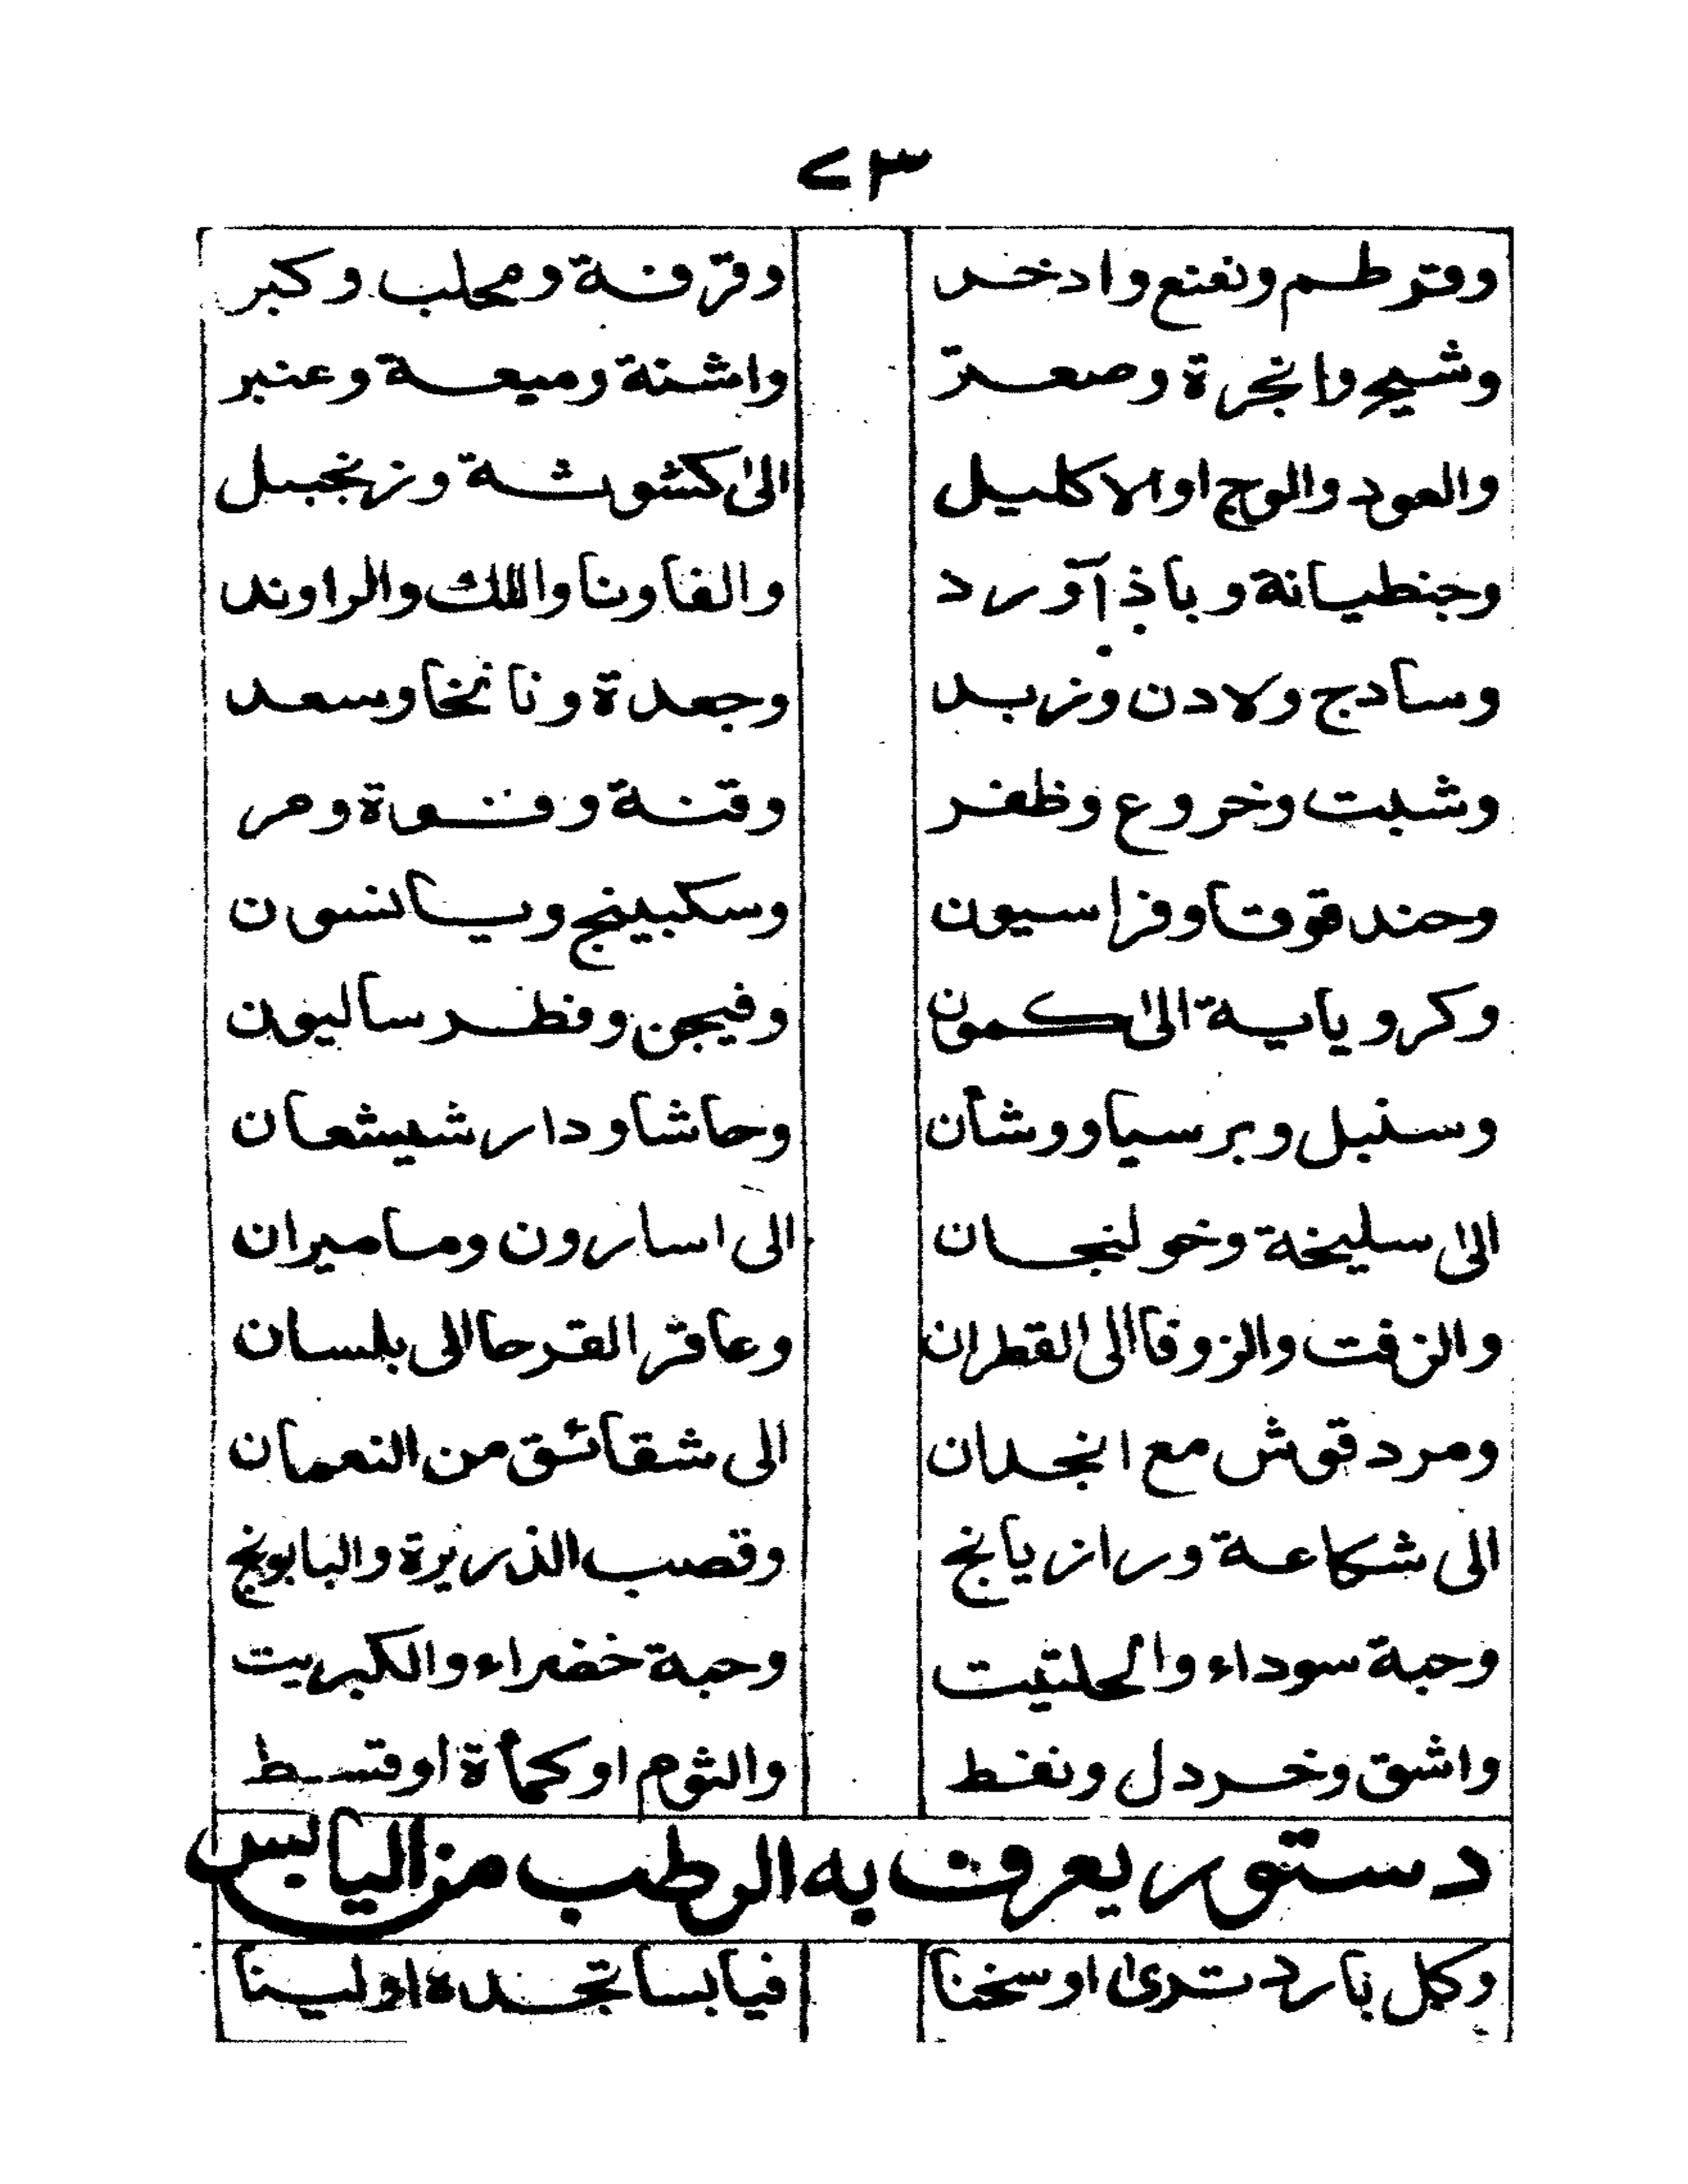 ٢٣
وقرطم ونعنع واذخر وقرفة ومحلب وكبر
وشيح وانجرة وصعتر واشنة وميعة وعنبر
والعود والوج اوالاكليل الى كشوثة وزنجبيل
وجنطيانة وباذآورد والفاونا واللك والراوند
وسادج ولادن وزبد وجعدة ونانخا وسعد
وشبت وخروع وظفر وقنة وفوة ومر
وحندقوقا وفراسيون وسكبينج ويسالنسون
وكروياية الى كمون وفيجن وفطرساليون
وسنبل وبرسياووشأن وحاشا ودارشيشعان
الى سليخة وخولنجان الى اسارون وماميران
والزفت والزوفا الى القطران وعاقر القرحا الى بلسان
ومردقوش مع انجدان الى شقائق من النعمان
الى شكاعة ورازيانج وقصب الذريرة والبابونج
وحبة سوداء والحلتيت وحبة خضراء والكبريت
واشق وخردل ونفط والثوم اوكمأة اوقسط
دستور يعرف به الرطب من اليابس
وكل بارد ترى اوسخنا فيابسا تجده اولينا